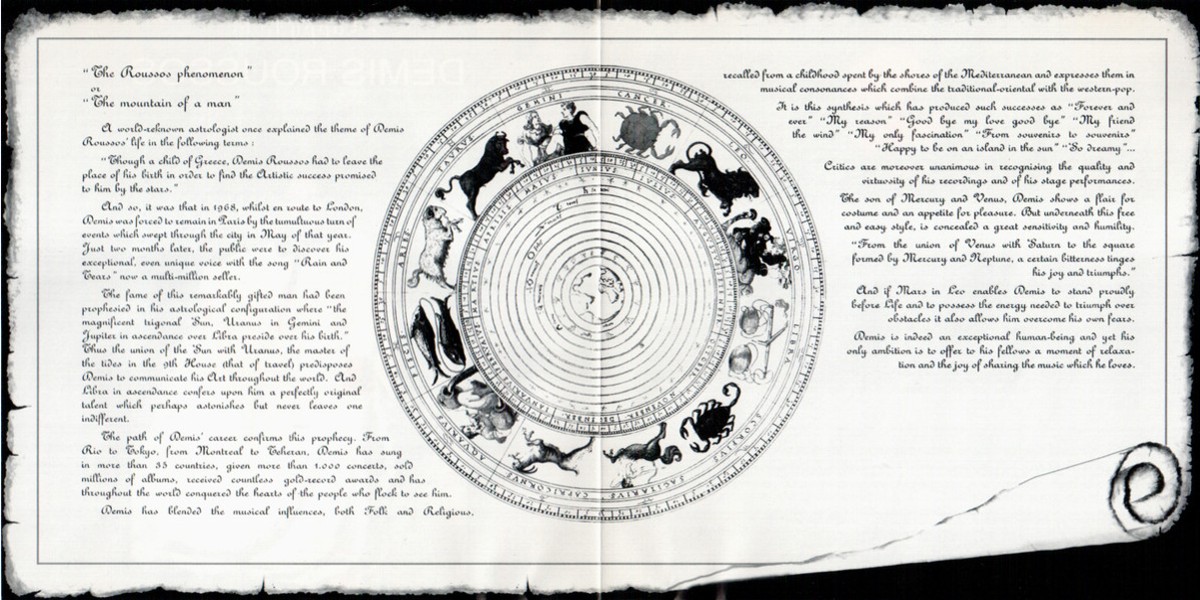 "The Roussos phenomenon"
or
"The mountain of a man"
A world-reknown astrologist once explained the theme of Demis
Roussos' life in the following terms :
"Though a child of Greece, Demis Roussos had to leave the
place of his birth in order to find the Artistic success promised
to him by the stars."
And so, it was that in 1968, whilst en route to London,
Demis was forced to remain in Paris by the tumultuous turn of
events which swept through the city in May of that year.
Just two months later, the public were to discover his
exceptional, even unique voice with the song "Rain and
Tears" now a multi-million seller.
The fame of this remarkably gifted man had been
prophesied in his astrological configuration where "the
magnificent trigonal Sun, Uranus in Gemini and
Jupiter in ascendance over Libra preside over his birth."
Thus the union of the Sun with Uranus, the master of
the tides in the 9th House (that of travel) predisposes
Demis to communicate his Art throughout the world. And
Libra in ascendance confers upon him a perfectly original
talent which perhaps astonishes but never leaves one
indifferent.
The path of Demis' career confirms this prophecy. From
Rio to Tokyo, from Montreal to Teheran, Demis has sung
in more than 55 countries, given more than 1.000 concerts, sold
millions of albums, received countless gold-record awards and has
throughout the world conquered the hearts of the people who flock to see him.
Demis has blended the musical influences, both Folk and Religious,
recalled from a childhood spent by the shores of the Mediterranean and expresses them in
musical consonances which combine the traditional-oriental with the western-pop.
It is this synthesis which has produced such successes as "Forever and
ever" "My reason" "Good bye my love good bye" "My friend
the wind" "My only fascination" "From souvenirs to souvenirs"
"Happy to be on an island in the sun" "So dreamy"...
Critics are moreover unanimous in recognising the quality and
virtuosity of his recordings and of his stage performances.
The son of Mercury and Venus, Demis shows a flair for
costume and an appetite for pleasure. But underneath this free
and easy style, is concealed a great sensitivity and humility.
"From the union of Venus with Saturn to the square
formed by Mercury and Neptune, a certain bitterness tinges
his joy and triumphs."
And if Mars in Leo enables Demis to stand proudly
before Life and to possess the energy needed to triumph over
obstacles it also allows him overcome his own fears.
Demis is indeed an exceptional human-being and yet his
only ambition is to offer to his fellows a moment of relaxa-
tion and the joy of sharing the music which he loves.
GEMINI
CANCER
LEO
VIRGO
LIBRA
SCORPIUS
SAGITARIUS
CAPRICORNUS
AQUARIUS
PISCES
ARIES
TAURUS